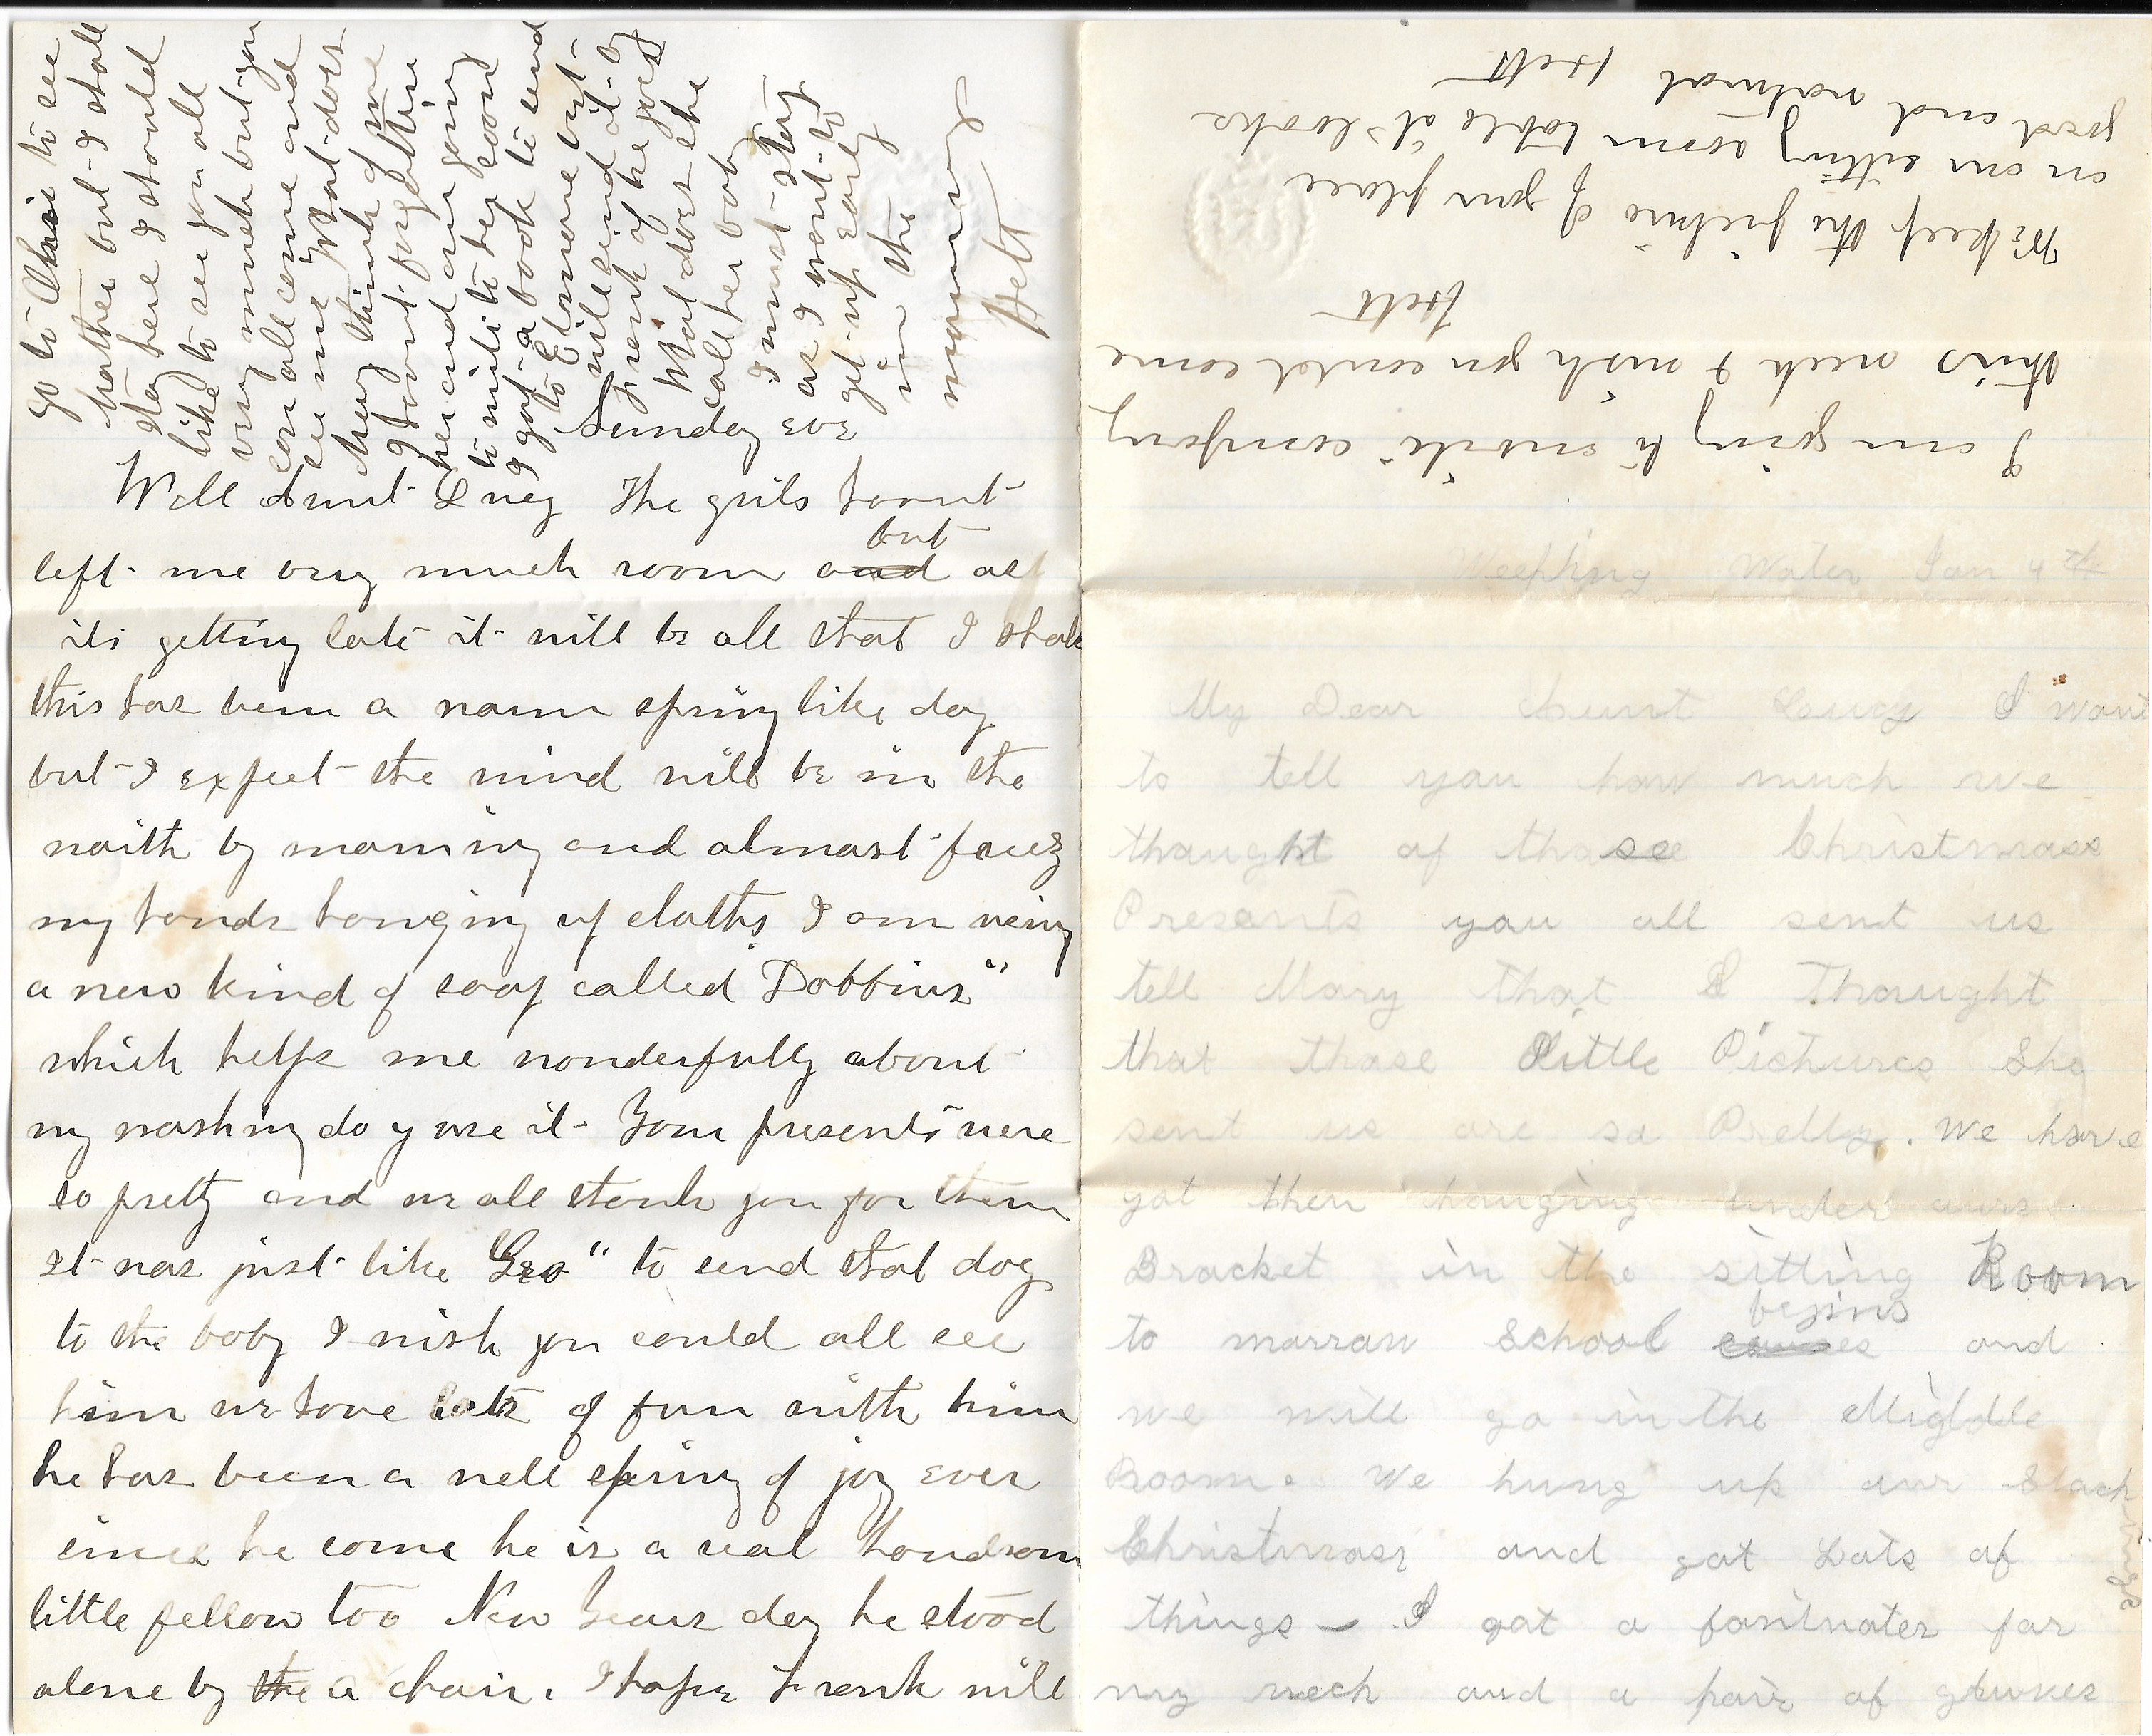 Sunday eve
Well Aunt Lucy The girls havnt
left me very much room and but as
its getting late it will be all that I shall
this has been a warm spring like day
but I expect the wind will be in the
north by morning and almost freez
my hands hanging up cloths I am using
a new kind of soap called "Dobbins"
which helps me wonderfully about
my washing do y use it Your presents were
so pretty and we all thank you for them
It was just like "Geo" to send that dog
to the baby I wish you could all see
him we have lots of fun with him
he has been a well spring of joy ever
since he come he is a real handsom
little fellow too New Years day he stood
alone by the a chair. I hope Frank will
go to Ohio to see
mother but I shall
stay here I should
like to see you all
very much but you
can all come and
see me What does
Mary think of me
I havnt forgotten
her and am going
to write to her soon
I got a book to send
to Elsmore but
will send it by
Frank if he goes
What does she
call her baby
I must stop
as I want to
get up early
in the
morning
Hett
I am going to invite company
this week I wish you could come
Hett
We keep the picture of your place
on our sitting room table it looks
good and natural Hett
Weeping Water Jan 4th
My Dear Aunt Lucy I want
to tell you how much we
thought of those Christmass
Presents you all sent us
tell Mary that I thought
that those Little Pichures She
sent us are so Pretty. We have
got then hanging under ours
Bracket in the sitting Room
to morrow School begins and
we will go in the Middle
Room. We hung up our Stockings
Christmass and got Lots of
things – I got a fasinater for
my neck and a pair of gluves